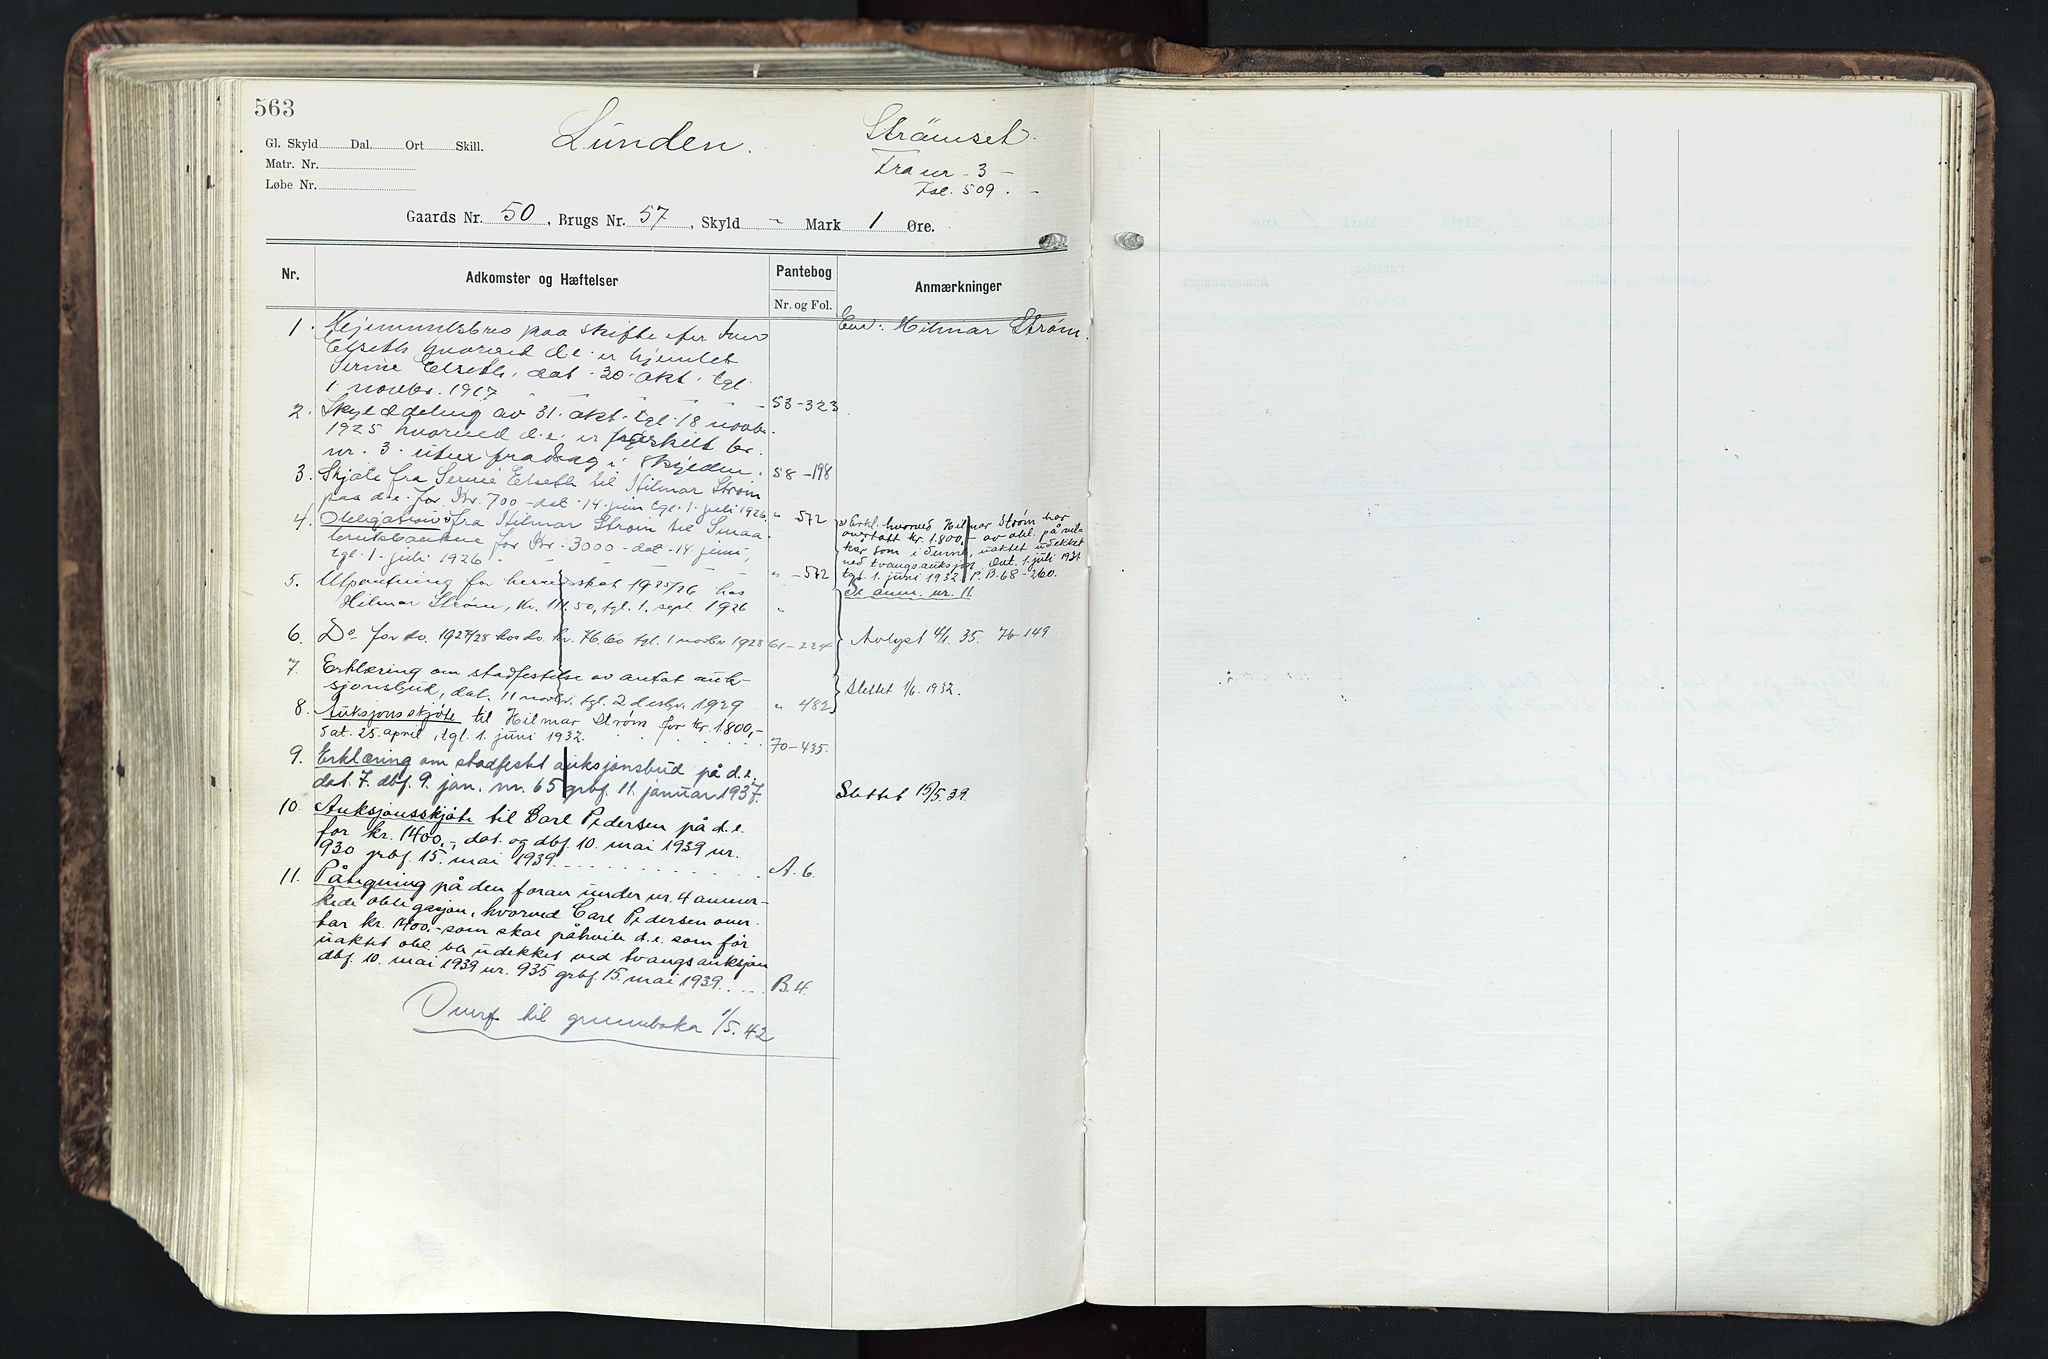 563
Lunden. Strömset.
Gl. Skyld Dal. Ort Skill.
Matr. Nr.
Løbe Nr.
Fra nr. 3 -
Fol. 509. -
Gaards Nr. 50, Brugs Nr. 57, Skyld - Mark 1 Øre.
Nr. Adkomster og Hæftelser Pantebog Anmærkninger
Nr. og Fol.
1. Hjemmelsbrev paa skifte efter
Elseth hvorved d.e. er hjemlet
Serine Elseth, dat. 30. okt. tgl.
1. novbr. 1917 53-323
Eier: Hilmar Strøm.
2. Skylddeling av 31. okt. tgl. 18 novbr.
1925 hvorved d.e. er fraskilt br.
nr. 3. uten fradrag i skylden. 58-198
3. Skjøte fra Serine Elseth til Hilmar Strøm
paa d.e. for Kr. 700 - dat. 14. juni tgl. 1. juli 1926. " 572
4. Obligation fra Hilmar Strøm til Smaa-
brukbanken for Kr. 3000 - dat. 14. juni,
tgl. 1. juli 1926 " - 572
Erkl. hvorved Hilmar Strøm har
overtatt kr. 1.800,- av obl. på vil-
kår som i denne, uaktet udekket
ved tvangsauksjon. Dat. 1. juli 1931
tgl. 1. juni 1932 P.B. 68-260.
Se anm. nr. 11
5. Utpantning for herredsskat 1925/26 hos
Hilmar Strøm, Kr. 111.50, tgl. 1. sept. 1926 "
6. Do for do. 1927/28 hos do. kr. 76.60 tgl. 1 novbr 1928 61-224
Avlyst 4/1. 35. 76-149
7. Erklæring om stadfestelse av antat auk-
sjonsbud, dat. 11 novbr. tgl. 2 desbr. 1929 " 482
Slettet 1/6. 1932.
8. Auksjonsskjøte til Hilmar Strøm for kr. 1.800,-
Dat. 25. april, tgl. 1. juni 1932. 70-435.
9. Erklæring om stadfestet auksjonsbud på d.e.
dat. 7. dbf. 9. jan. nr. 65 grbf. 11. januar 1937.
Slettet 15/5. 39.
10. Auksjonsskjøte til Carl Pedersen på d.e.
for kr. 1400,-, dat. og dbf. 10. mai 1939 nr.
930 grbf. 15. mai 1939. A. 6.
11. Påtegning på den foran under nr. 4 anmer-
kede obligasjon, hvorved Carl Pedersen over-
tar kr. 1400.- som skal påhvile d.e. som før
uaktet obl. ble udekket ved tvangsauksjon
dbf. 10. mai 1939 nr. 935 grbf. 15. mai 1939. B. 4.
Overf til grunnboka 1/5. 42